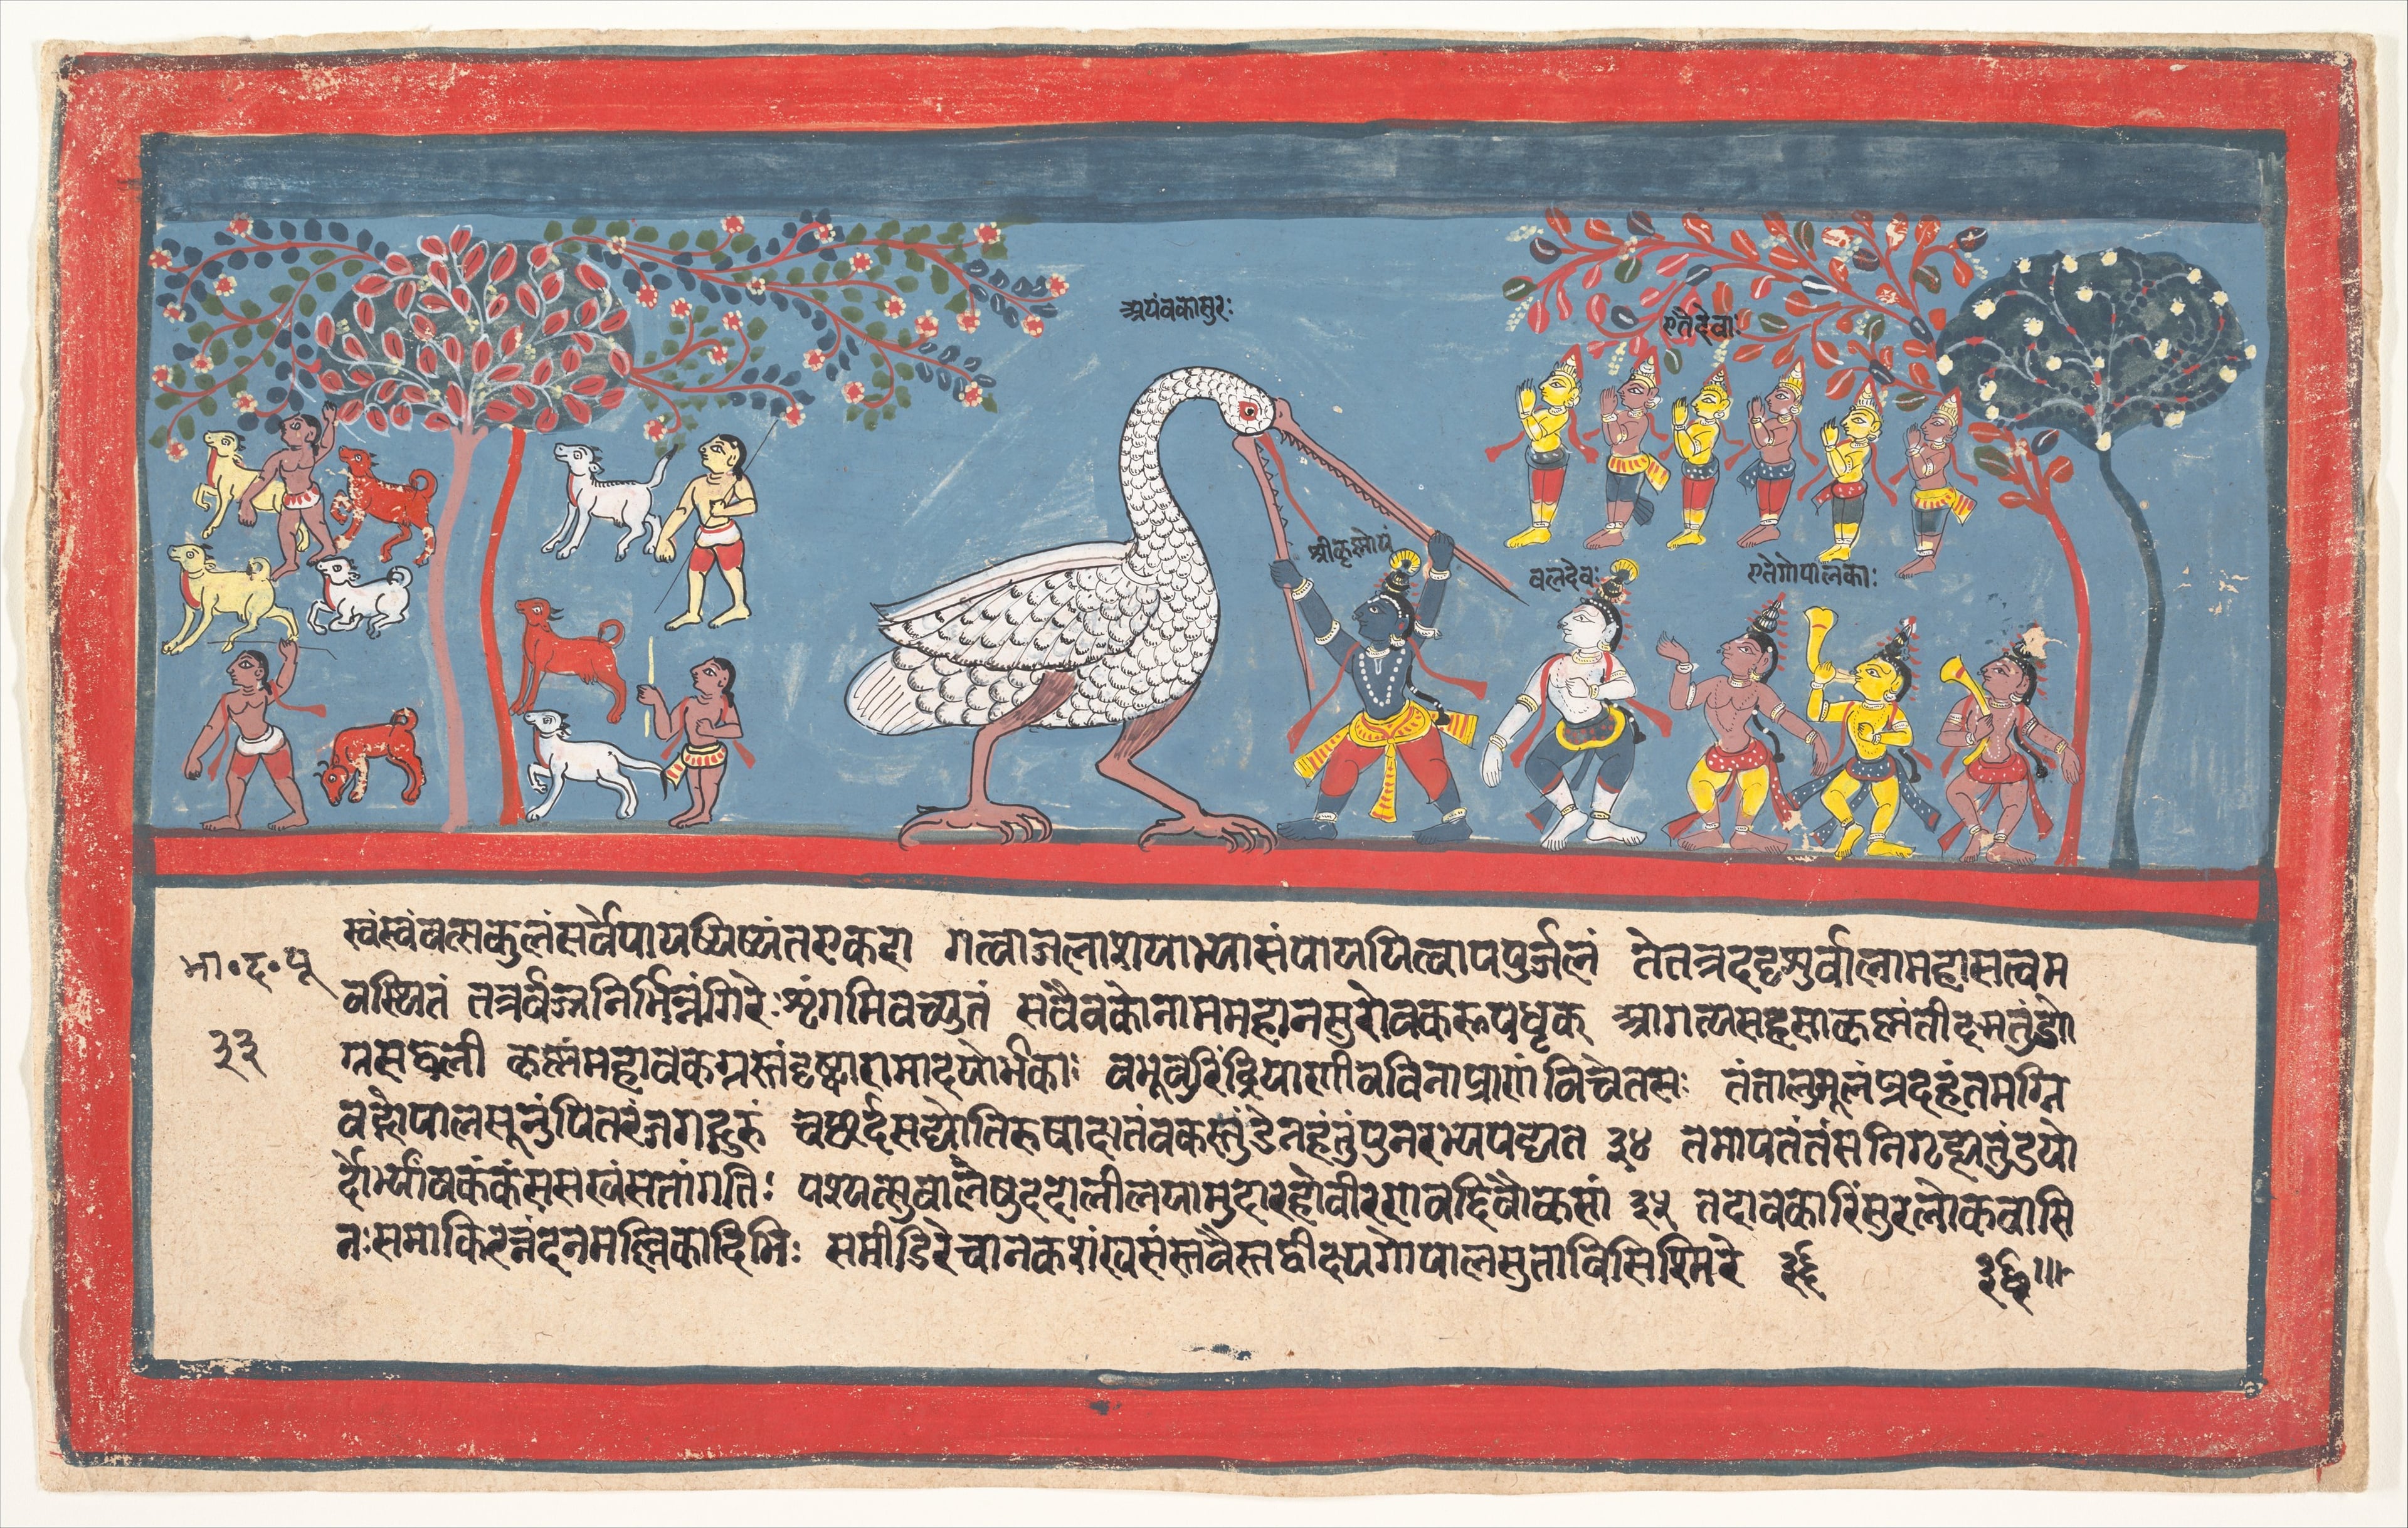 अयंवकासुरः
एतेदेवाः
श्रीकृष्णोयं
वलदेवः
एतेगोपालकाः
भा॰द॰पू
३३
स्वंस्वंवत्सकुलंसर्वेपाययिष्यंतएकदा गत्वाजलाशयाभ्यासंपाययित्वापपुर्जलं तेतत्रददृशुर्वालामहासत्वम
वस्थितं तत्रर्वज्रनिर्भिन्नंगिरेःशृंगमिवच्युतं सवैवकोनाममहानसुरोवकरूपधृक् आगत्यसहसाकृष्णंतीक्ष्णतुंडो
ग्रसद्वली कृष्णंमहावकग्रस्तंदृष्ट्वारामादयोर्भकाः वभूवुरिंद्रियाणीवविनाप्राणंविचेतसः तंतालुमूलंप्रदहंतमग्नि
वद्गोपालसूनुंपितरंजगद्गुरुं चछर्दसद्योतिरुषाक्षतंवकस्तुंडेनहंतुंपुनरभ्यपद्यत ३४ तमापतंतंसनिगृह्यतुंडयो
र्दोर्भ्यांवकंकंससखंसतांगतिः पश्यत्सुवालेषुददालीलयामुदारहोवीरणवद्दिवौकसां ३५ तदावकारिंसुरलोकवासि
नःसमाकिरन्नंदनमल्लिकादिभिः समीडिरेचानकशंखसंस्तवैस्तद्वीक्ष्यगोपालसुताविसिश्मिरे ३६